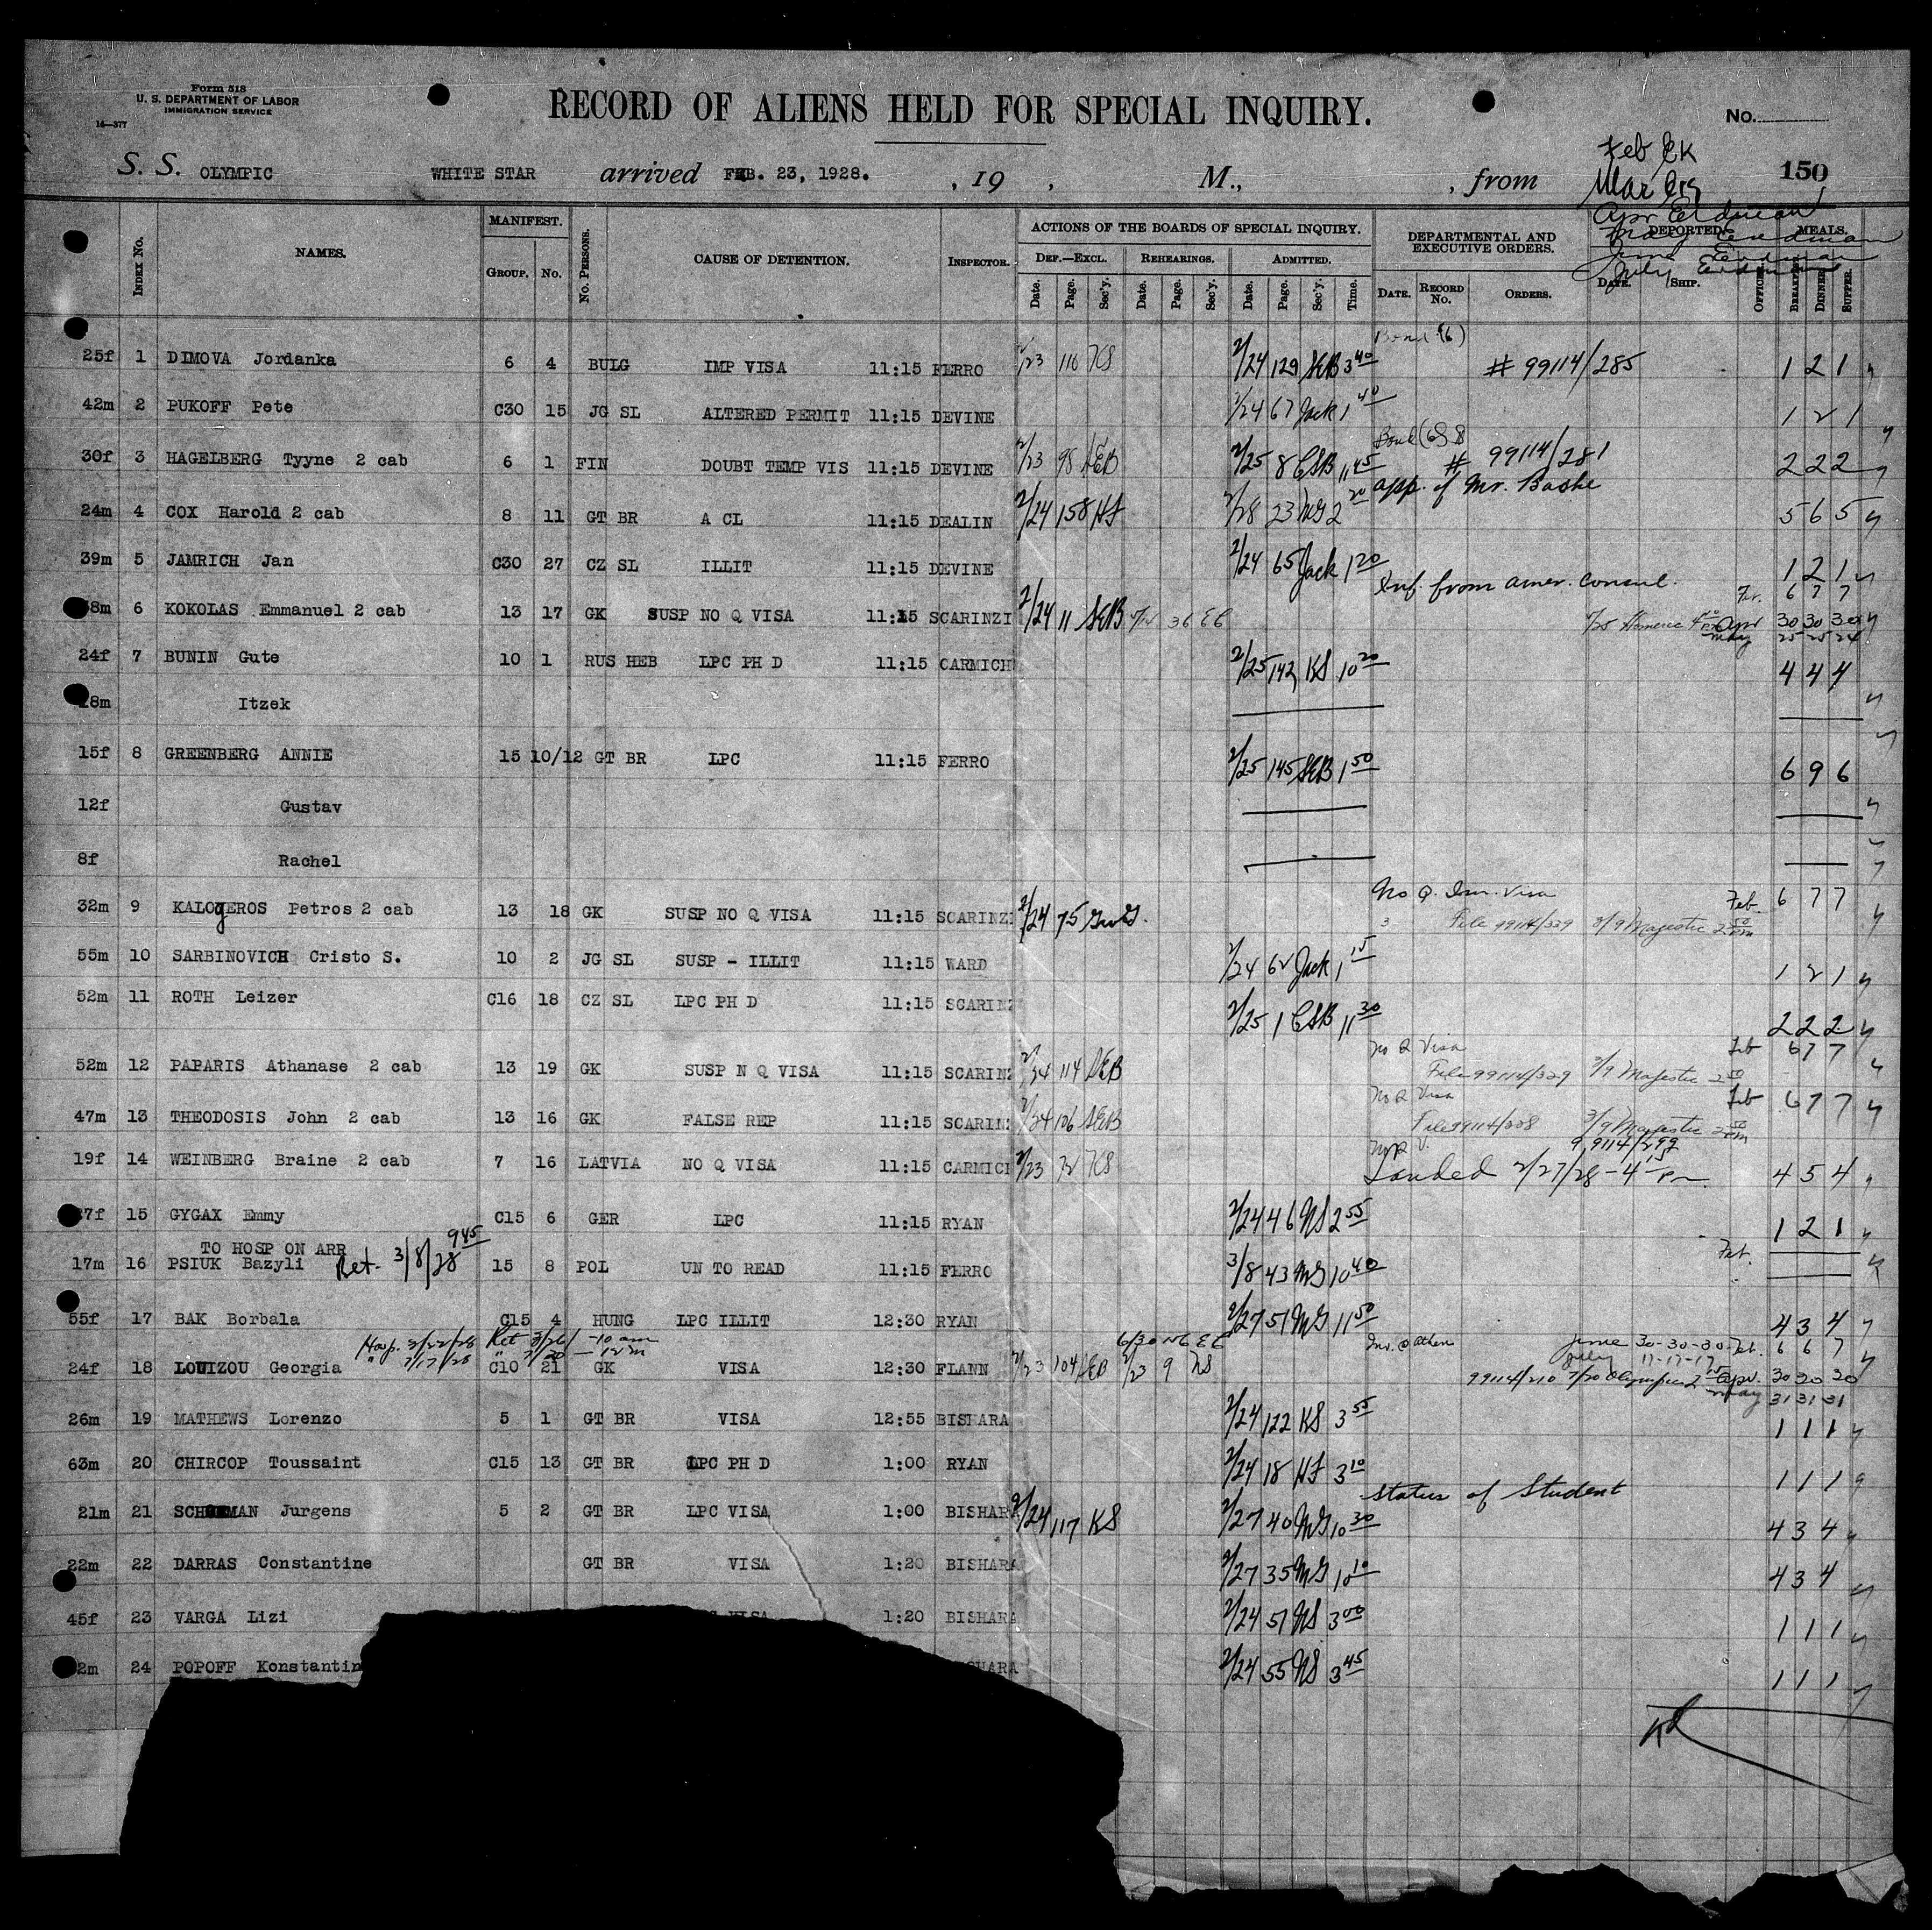 Form 518
U. S. DEPARTMENT OF LABOR
IMMIGRATION SERVICE
14—377
RECORD OF ALIENS HELD FOR SPECIAL INQUIRY.
No.
Feb EK
Mar
Apr Erdman
May Erdman
June Erdman
July Erdman
150
S. S. OLYMPIC WHITE STAR arrived FEB. 23, 1928. , 19 , M., , from
INDEX NO. NAMES. MANIFEST. GROUP. NO. NO. PERSONS. CAUSE OF DETENTION. INSPECTOR. ACTIONS OF THE BOARDS OF SPECIAL INQUIRY. DEF.—EXCL. Date. Page. Sec'y. REHEARINGS. Date. Page. Sec'y. ADMITTED. Date. Page. Sec'y. Time. DEPARTMENTAL AND EXECUTIVE ORDERS. DATE. RECORD NO. ORDERS. DEPORTED. DATE. SHIP. OFFICER. MEALS. BREAKFAST. DINNER. SUPPER.
25f 1 DIMOVA Jordanka 6 4 BULG IMP VISA 11:15 FERRO 2/23 110 KS 2/24 129 SEB 3 40 Bond (6) # 99114/285 1 2 1
42m 2 PUKOFF Pete C30 15 JG SL ALTERED PERMIT 11:15 DEVINE 2/24 67 Jack 1 40 1 2 1
30f 3 HAGELBERG Tyyne 2 cab 6 1 FIN DOUBT TEMP VIS 11:15 DEVINE 2/23 98 SEB 2/25 8 CSB 11 45 Bond # 99114/281 2 2 2
24m 4 COX Harold 2 cab 8 11 GT BR A CL 11:15 DEALIN 2/24 158 HF 2/28 23 MG 2 20 app. of Mr. 5 6 5
39m 5 JAMRICH Jan C30 27 CZ SL ILLIT 11:15 DEVINE 2/24 65 Jack 1 20 1 2 1
8m 6 KOKOLAS Emmanuel 2 cab 13 17 GK SUSP NO Q VISA 11:15 SCARINZI 2/24 11 SEB 36 EE Inf. from Amer. Consul. 5/25 Homeric 6 7 7
Apr 30 30 30
May 25 25 24
24f 7 BUNIN Gute 10 1 RUS HEB LPC PH D 11:15 CARMICH 2/25 142 KS 10 20 4 4 4
8m Itzek
15f 8 GREENBERG ANNIE 15 10/12 GT BR LPC 11:15 FERRO 2/25 145 SEB 1 50 6 9 6
12f Gustav
8f Rachel
32m 9 KALOGEROS Petros 2 cab 13 18 GK SUSP NO Q VISA 11:15 SCARINZI 2/24 75 No Q. Im. Visa Feb. 6 7 7
File 99114/329 3/9 Majestic 2 50 PM
55m 10 SARBINOVICH Cristo S. 10 2 JG SL SUSP - ILLIT 11:15 WARD 2/24 62 Jack 1 15 1 2 1
52m 11 ROTH Leizer C16 18 CZ SL LPC PH D 11:15 SCARINZ 2/25 1 CSB 11 30 2 2 2
52m 12 PAPARIS Athanase 2 cab 13 19 GK SUSP N Q VISA 11:15 SCARINZ 2/24 114 SEB No Q Visa Feb 6 7 7
File 99114/329 3/9 Majestic 2 50
47m 13 THEODOSIS John 2 cab 13 16 GK FALSE REP 11:15 SCARINZ 2/24 106 SEB No Q Visa Feb 6 7 7
File 99114/308 3/9 Majestic 2 50 PM
19f 14 WEINBERG Braine 2 cab 7 16 LATVIA NO Q VISA 11:15 CARMICH 2/23 72 KS 99114/299
Landed 2/27/28 - 4 15 Pm. 4 5 4
7f 15 GYGAX Emmy C15 6 GER LPC 11:15 RYAN 2/24 46 NS 2 55 1 2 1
TO HOSP ON ARR
17m 16 PSIUK Bazyli Ret. 3/8/28 9 45 15 8 POL UN TO READ 11:15 FERRO 3/8 43 MG 10 40 Feb.
55f 17 BAK Borbala C15 4 HUNG LPC ILLIT 12:30 RYAN 2/27 51 MG 11 50 4 3 4
Hosp. 3/22/28 Ret 3/26/ -10 am 6/30 EE Inv. @ Athen June 30-30-30 Feb. 6 6 7
" 7/17/28 " 7/20 - 12 m July 17-17-17
24f 18 LOUIZOU Georgia C10 21 GK VISA 12:30 FLANN 2/23 104 SEB 2/23 9 NS 99114/210 7/20 Olympic 2 15 Apr. 30 30 30
May 31 31 31
26m 19 MATHEWS Lorenzo 5 1 GT BR VISA 12:55 BISHARA 2/24 122 KS 3 55 1 1 1
63m 20 CHIRCOP Toussaint C15 13 GT BR LPC PH D 1:00 RYAN 2/24 18 HF 3 10 1 1 1
21m 21 SCHOEMAN Jurgens 5 2 GT BR LPC VISA 1:00 BISHARA 2/24 117 KS 2/27 40 MG 10 30 Status of Student 4 3 4
22m 22 DARRAS Constantine GT BR VISA 1:20 BISHARA 2/27 35 MG 10 10 4 3 4
45f 23 VARGA Lizi VISA 1:20 BISHARA 2/24 51 NS 3 00 1 1 1
2m 24 POPOFF Konstantin SHARA 2/24 55 NS 3 45 1 1 1